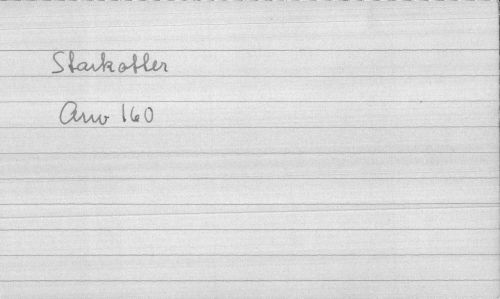 Starkotter
Anw 160